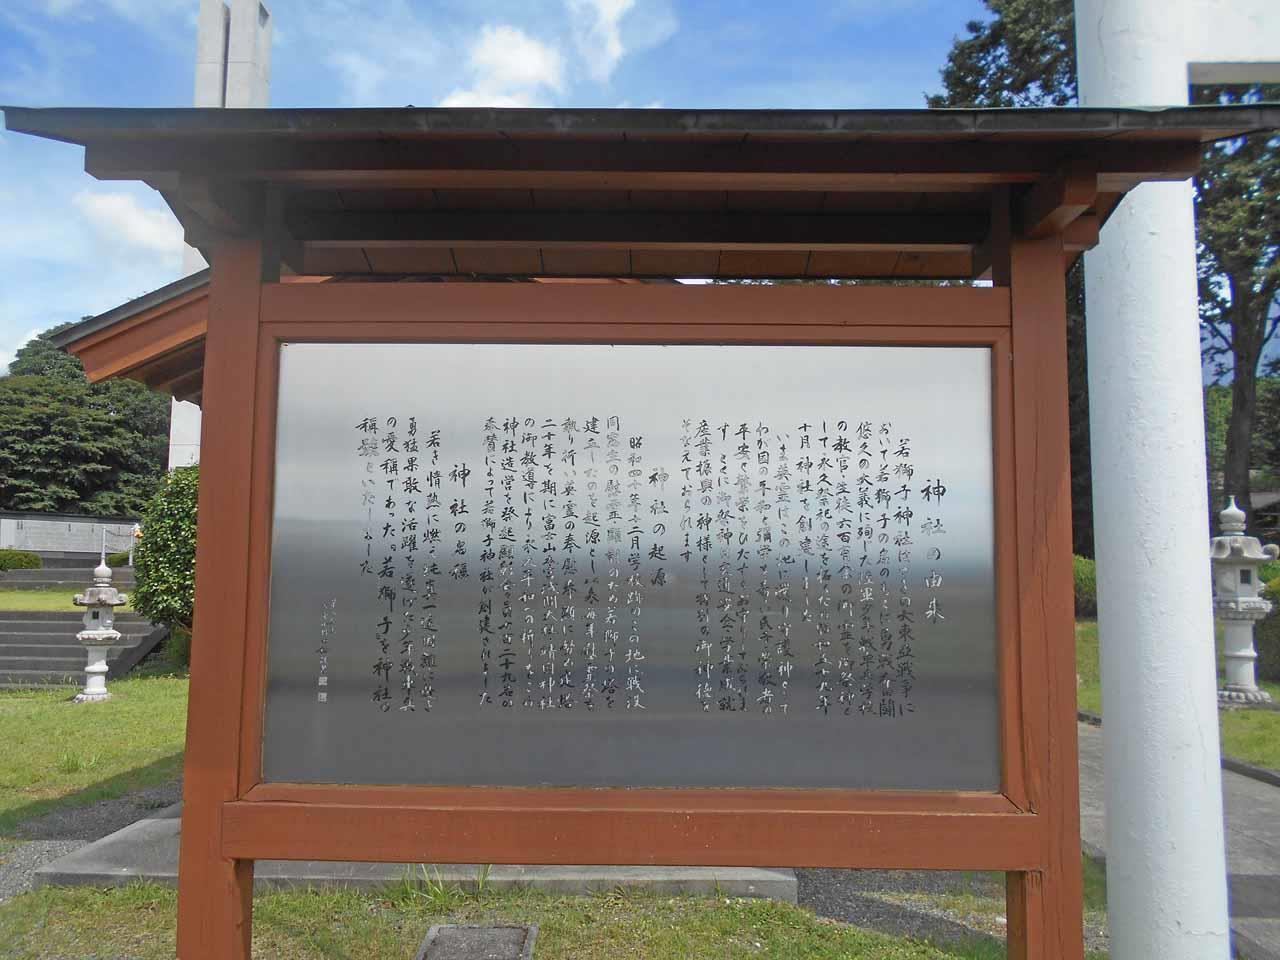 神社の由来
若獅子神社はさきの大東亜戦争に
おいて若獅子の旗のもとに勇戦奮闘
悠久の大義に殉じた陸軍少年戦車兵学校
の教官生徒六百有余の御霊を御祭神と
して永久祭祀の途を拓くため昭和五十九年
十月神社を創建しました
いま英霊はこの地に鎮り守護神として
わが国の平和と彌栄を若い民子崇敬者の
平安と繁栄をひたすらお守りしております
とくに御祭神は交通安全学業成就
産業振興の神様として特別の御神徳を
そなえておられます
神社の起源
昭和四十年十二月学校跡のこの地に戦没
同窓の慰霊顕彰のため若獅子の塔を
建立したのを起源とし以来毎年慰霊祭を
執り行い英霊の奉慰奉頌に努め建塔
二十年を期に富士山本宮浅間大社靖国神社
の御教導により永久平和への祈りをこめ
神社造営を発起顕彰会々員六百二十九名の
奉賛によって若獅子神社が創建されました
神社の名称
若き情熱に燃え純真一途国難に赴き
勇猛果敢な活躍を遂げた少年戦車兵
の愛称であった若獅子を神社の
称号といたしました